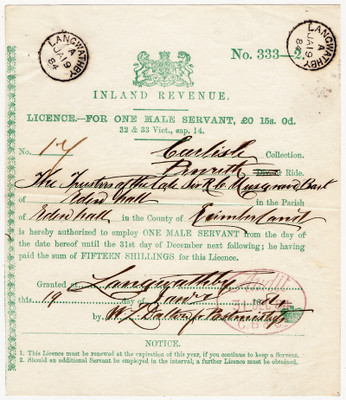 LANGWATHBY
A
JA 19
84
LANGWATHBY
A
JA 19
84
No. 333—2.
INLAND REVENUE.
LICENCE.—FOR ONE MALE SERVANT, £0 15s. 0d.
32 & 33 Vict., cap. 14.
No. 17 Carlisle Collection.
Penrith Ride.
The Trustees of the Late Sir R C Musgrave Bart
of Eden hall in the Parish
of Edenhall in the County of Cumberland
is hereby authorized to employ ONE MALE SERVANT from the day of
the date hereof until the 31st day of December next following; he having
paid the sum of FIFTEEN SHILLINGS for this Licence.
Granted at Langwathby
this 19 day of 188
by W. Postmaster
NOTICE.
1. This Licence must be renewed at the expiration of this year, if you continue to keep a Servant.
2. Should an additional Servant be employed in the interval, a further Licence must be obtained.